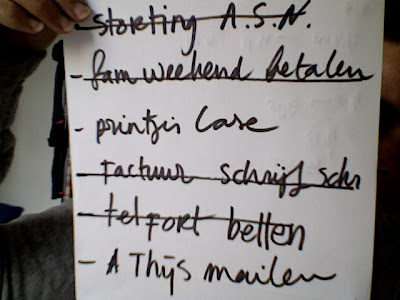 - storting A.S.N.
- fam weekend betalen
- printjis Case
- factuur schrijf schr
- telfort bellen
- A Thijs mailen